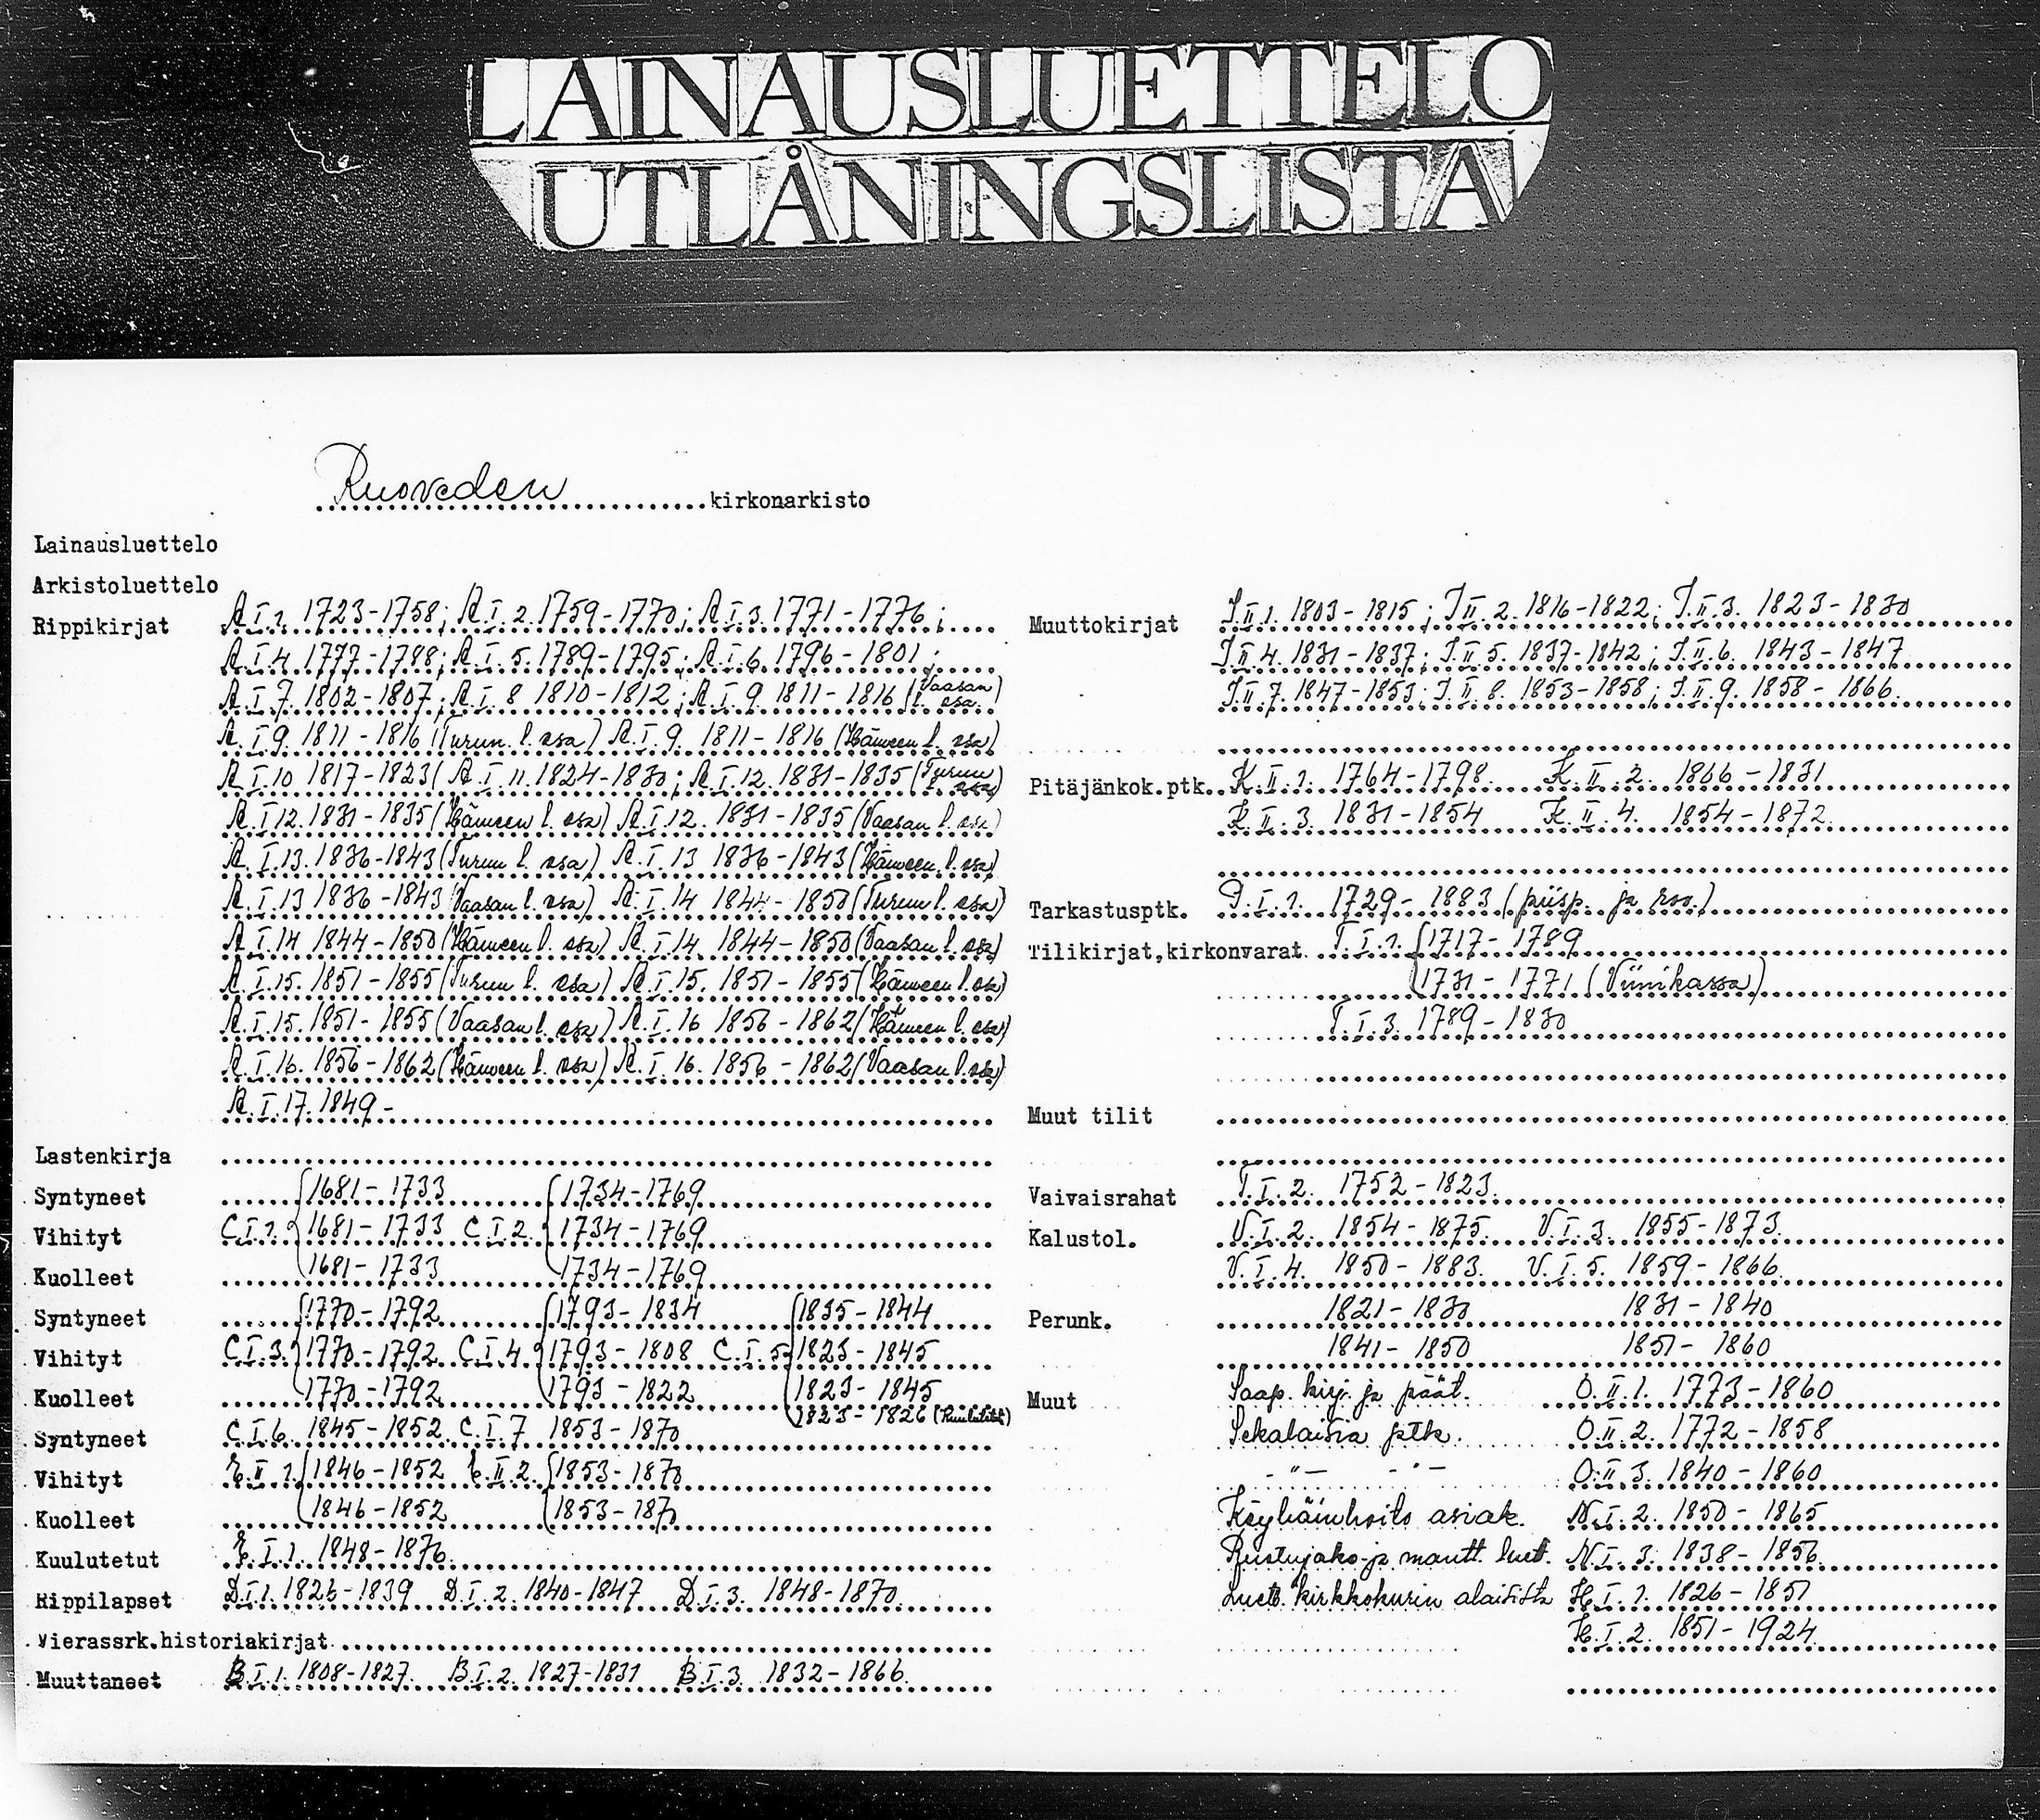 LAINAUSLUETTELO
UTLÅNINGSLISTA
Ruoveden kirkonarkisto
Lainausluettelo
Arkistoluettelo
Rippikirjat A.I.1. 1723-1758; A.I.2. 1759-1770; A.I.3. 1771-1776;
A.I.4. 1777-1788; A.I.5. 1789-1795; A.I.6. 1796-1801;
A.I.7. 1802-1807; A.I.8 1810-1812; A.I.9. 1811-1816 (Vaasan l. osa)
A.I.9. 1811-1816 (Turun l. osa) A.I.9. 1811-1816 (Hämeen l. osa)
A.I.10 1817-1823( A.I.11. 1824-1830; A.I.12. 1831-1835 (Turun l. osa)
A.I.12. 1831-1835 (Hämeen l. osa) A.I.12. 1831-1835 (Vaasan l. osa)
A.I.13. 1836-1843 (Turun l. osa) A.I.13 1836-1843 (Hämeen l. osa)
A.I.13 1836-1843 (Vaasan l. osa) A.I.14 1844-1850 (Turun l. osa)
A.I.14 1844-1850 (Hämeen l. osa) A.I.14. 1844-1850 (Vaasan l. osa)
A.I.15. 1851-1855 (Turun l. osa) A.I.15. 1851-1855 (Hämeen l. osa)
A.I.15. 1851-1855 (Vaasan l. osa) A.I.16 1856-1862 (Hämeen l. osa)
A.I.16. 1856-1862 (Hämeen l. osa) A.I.16. 1856-1862 (Vaasan l. osa)
A.I.17. 1849-
Lastenkirja
Syntyneet 1681-1733 1734-1769
Vihityt C.I.1. 1681-1733 C.I.2. 1734-1769
Kuolleet 1681-1733 1734-1769
Syntyneet 1770-1792 1793-1834 1835-1844
Vihityt C.I.3. 1770-1792 C.I.4. 1793-1808 C.I.5. 1823-1845
Kuolleet 1770-1792 1793-1822 1823-1845
1823-1826 (Kuulutetut)
Syntyneet C.I.6. 1845-1852 C.I.7 1853-1870
Vihityt E.II.1. 1846-1852 E.II.2. 1853-1870
Kuolleet 1846-1852 1853-187
Kuulutetut E.I.1. 1848-1876
Rippilapset D.I.1. 1826-1839 D.I.2. 1840-1847 D.I.3. 1848-1870
Vierassrk.historiakirjat
Muuttaneet B.I.1. 1808-1827. B.I.2. 1827-1831 B.I.3. 1832-1866.
Muuttokirjat J.II.1. 1803-1815; J.II.2. 1816-1822; J.II.3. 1823-1830
J.II.4. 1831-1837; J.II.5. 1837-1842; J.II.6. 1843-1847
J.II.7. 1847-1853; J.II.8. 1853-1858; J.II.9. 1858-1866.
Pitäjänkok.ptk. K.II.1. 1764-1798. K.II.2. 1866-1831
K.II.3. 1831-1854 K.II.4. 1854-1872
Tarkastusptk. P.I.1. 1729-1883 (piisp. ja rov.)
Tilikirjat,kirkonvarat T.I.1. 1717-1789
1731-1771 (Viinikassa)
T.I.3. 1789-1830
Muut tilit
Vaivaisrahat T.I.2. 1752-1823.
Kalustol. V.I.2. 1854-1875. V.I.3. 1855-1873.
V.I.4. 1850-1883. V.I.5. 1859-1866.
Perunk. 1821-1830 1831-1840
1841-1850 1851-1860
Muut Saap. kirj. ja päät. O.II.1. 1773-1860
Sekalaisia ptk. O.II.2. 1772-1858
-"- -"- O.II.3. 1840-1860
Köyhäinhoito asiak. N.I.2. 1850-1865
Ruotujako- ja mantt. luet. N.I.3. 1838-1856
Luett. kirkkokurin alaisista H.I.1. 1826-1851
H.I.2. 1851-1924